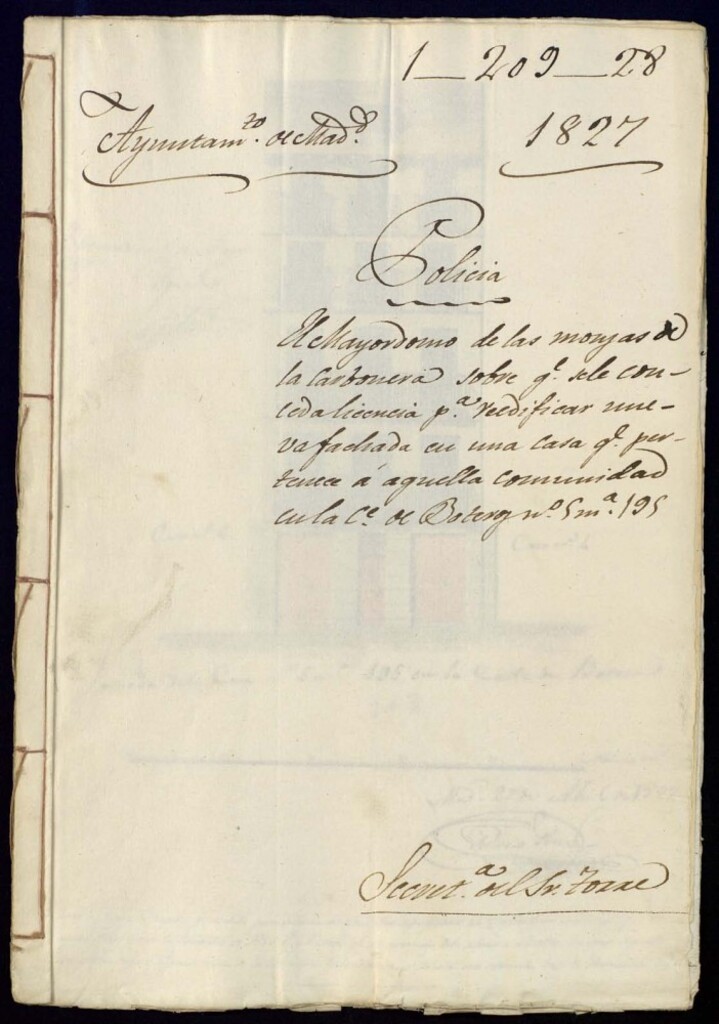 1—209—28
Ayuntamto. de Madd.
1827
Policia
El Mayordomo de las monjas de
la Carbonera sobre q.e sele con-
ceda licencia p.a reedificar nue-
va fachada en una casa q.e per-
tenece á aquella comunidad
en la C.e de Boteros n.o 5 m.a 195
Secret.a del Sr. Torre